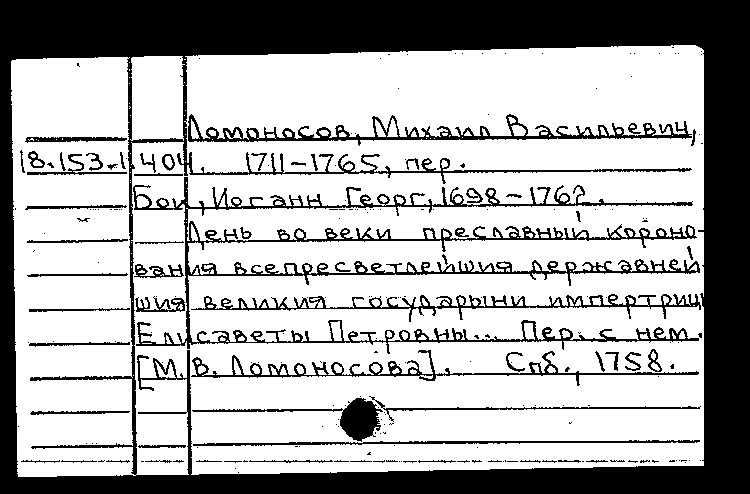 Ломоносов, Михаил Васильевич,
18.153.1.404. 1711-1765, пер.
Бок, Иоганн Георг, 1698-1762.
День во веки преславный короно-
вания всепресветлейшия державней-
шия великия государыни импертриц
Елисаветы Петровны... Пер. с нем.
[М.В. Ломоносова]. Спб., 1758.